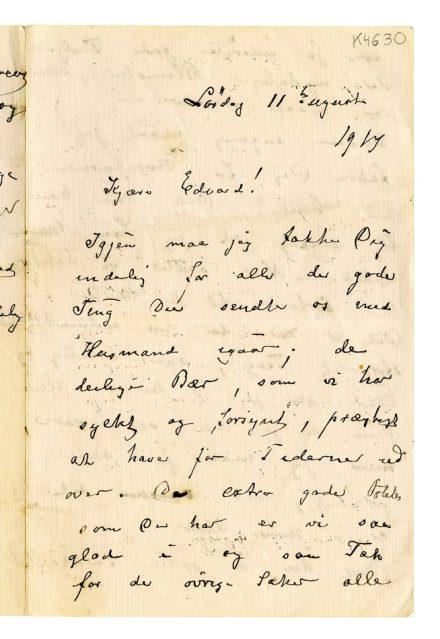 K4630
Lørdag 11 August
1917
Kjære Edvard!
Igjen maa jeg takke Dig
inderlig for alle de gode
Ting Du sendte os med
Husmand igaar; de
deilige Bær, som vi har
syltet og forsynt, prægtigt
at have for Tiderne ud
over. De extra gode Poteter
som Du har er vi saa
glad i og saa Tak
for de øvrige Saker alle